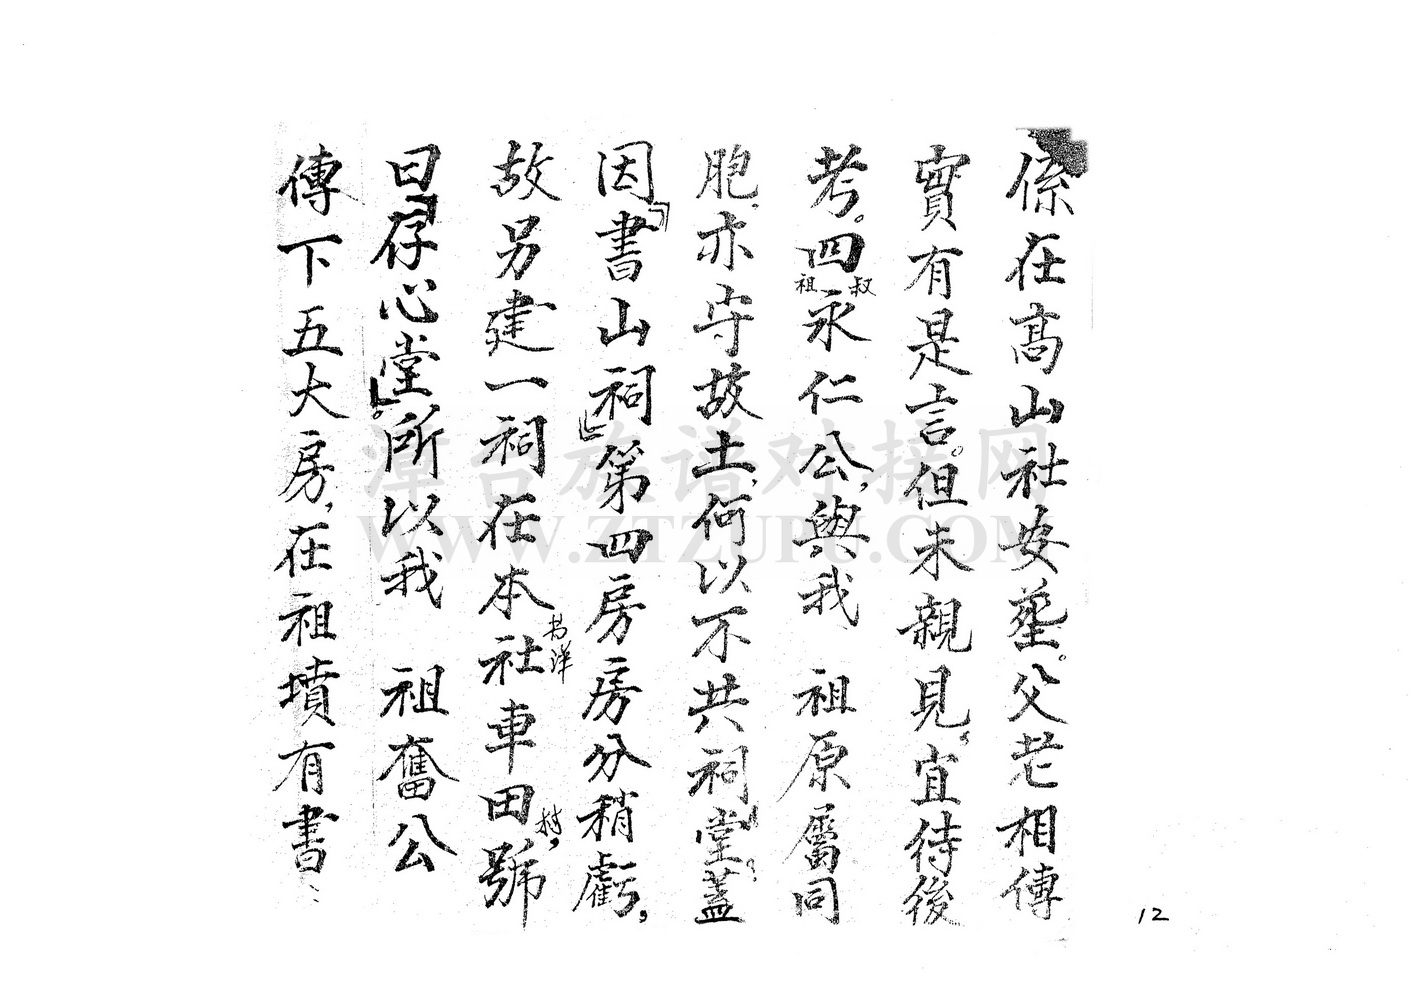 係在高山社安塟。父老相傳
實有是言。但未親見，宜待後
考。四叔祖永仁公，與我　祖原屬同
胞，亦守故土，何以不共祠堂，蓋
因「書山祠」第四房房分稍虧，
故另建一祠在本社书洋車田村，號
曰「存心堂」。所以我　祖奮公
傳下五大房，在祖墳有書
12
漳台族谱对接网
WWW.ZTZUPU.COM